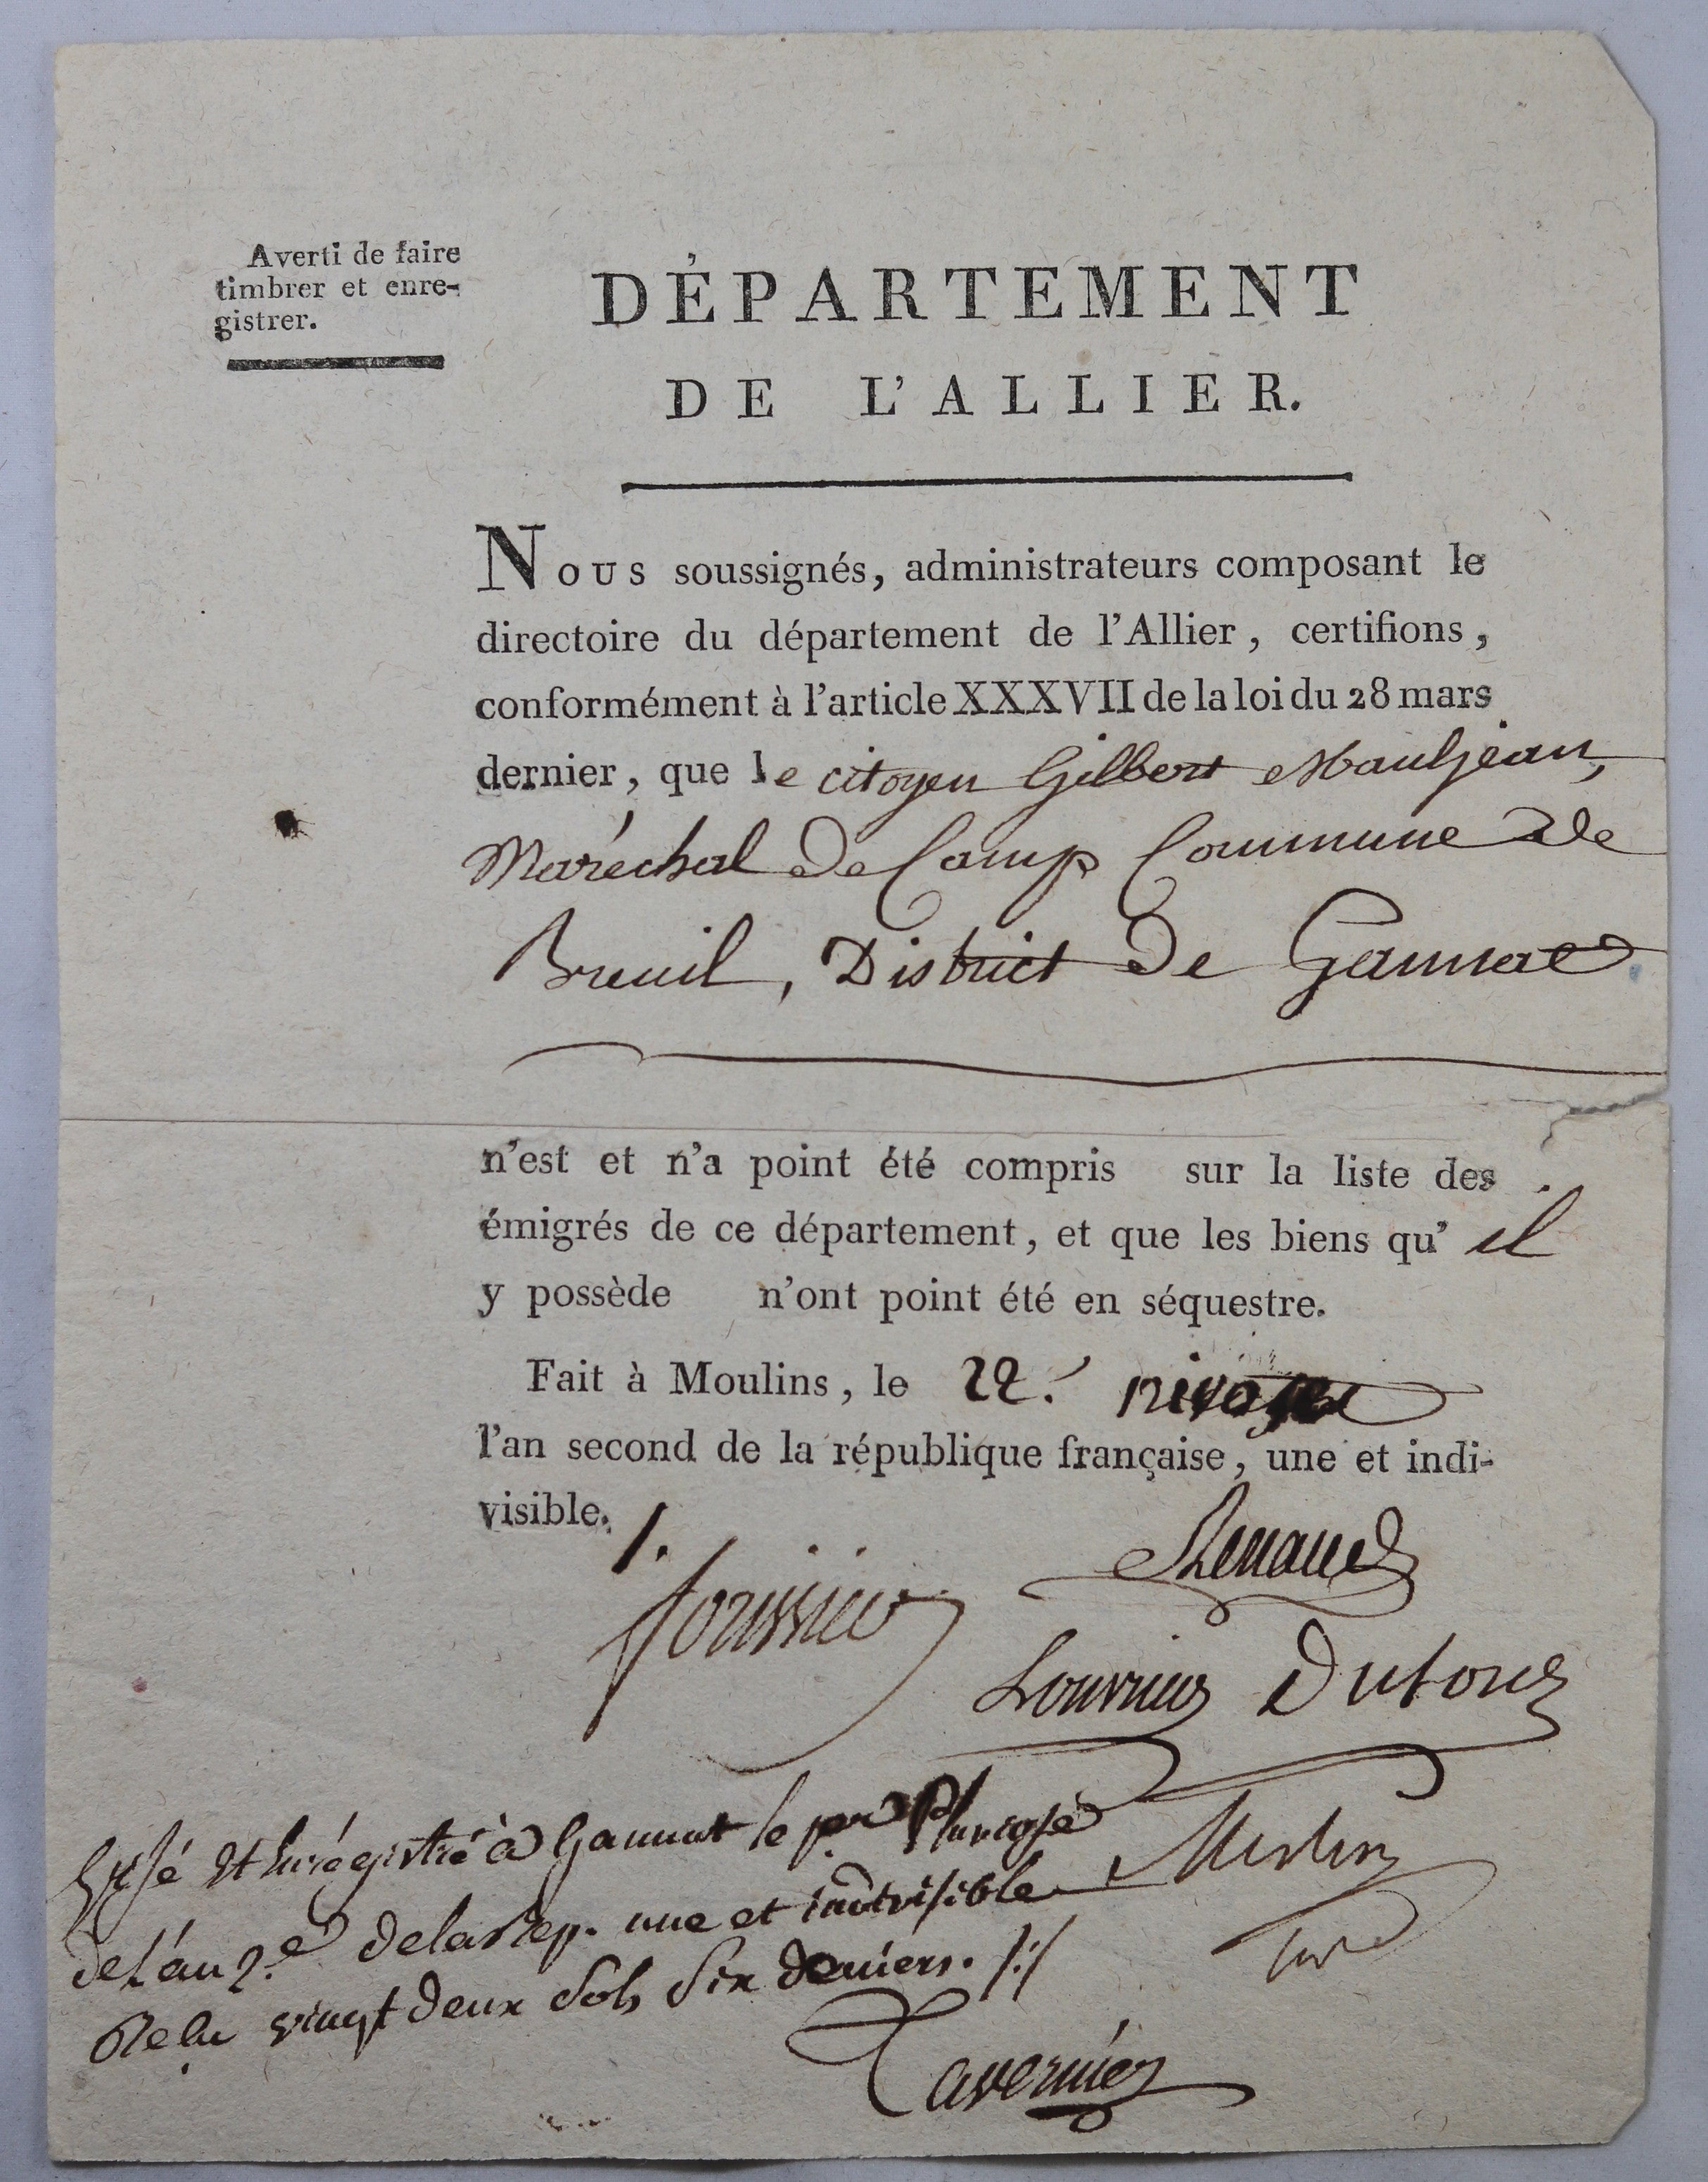 Averti de faire
timbrer et enre-
gistrer.
DÉPARTEMENT
DE L'ALLIER.
Nous soussignés, administrateurs composant le
directoire du département de l'Allier, certifions,
conformément à l'article XXXVII de la loi du 28 mars
dernier, que le citoyen Gilbert Mauljean,
Maréchal de Camp Commune de
Breuil, District de Gannat
n'est et n'a point été compris sur la liste des
émigrés de ce département, et que les biens qu' il
y possède n'ont point été en séquestre.
Fait à Moulins, le 22. nivose
l'an second de la république française, une et indi-
visible.
Renaud
Dutour
et Enrégistré à Gannat le per Pluviose
de L'an 2.e de la Rep. une et indivisible
Relu vingt deux Sols Six deniers.
Merlin
Tavernier